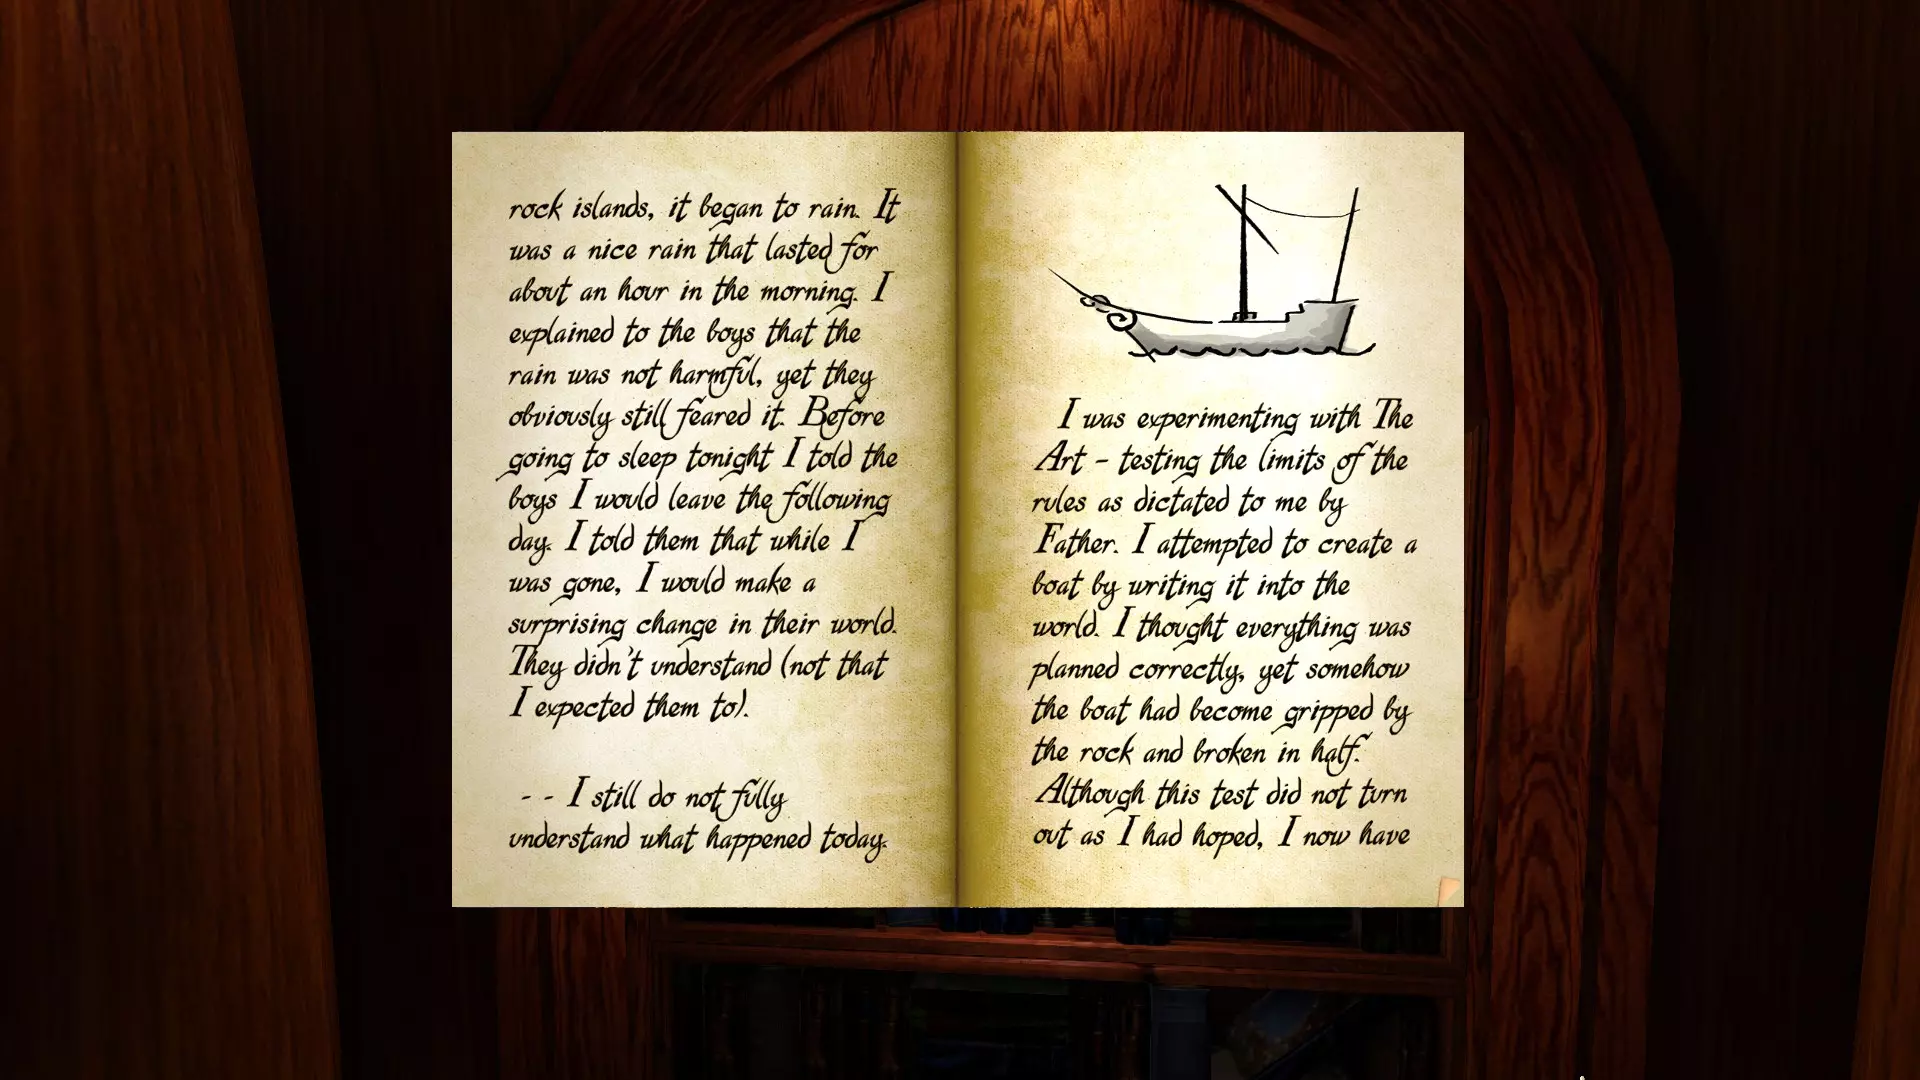 rock islands, it began to rain. It
was a nice rain that lasted for
about an hour in the morning. I
explained to the boys that the
rain was not harmful, yet they
obviously still feared it. Before
going to sleep tonight I told the
boys I would leave the following
day. I told them that while I
was gone, I would make a
surprising change in their world.
They didn't understand (not that
I expected them to).
- - I still do not fully
understand what happened today.
I was experimenting with The
Art - testing the limits of the
rules as dictated to me by
Father. I attempted to create a
boat by writing it into the
world. I thought everything was
planned correctly, yet somehow
the boat had become gripped by
the rock and broken in half.
Although this test did not turn
out as I had hoped, I now have